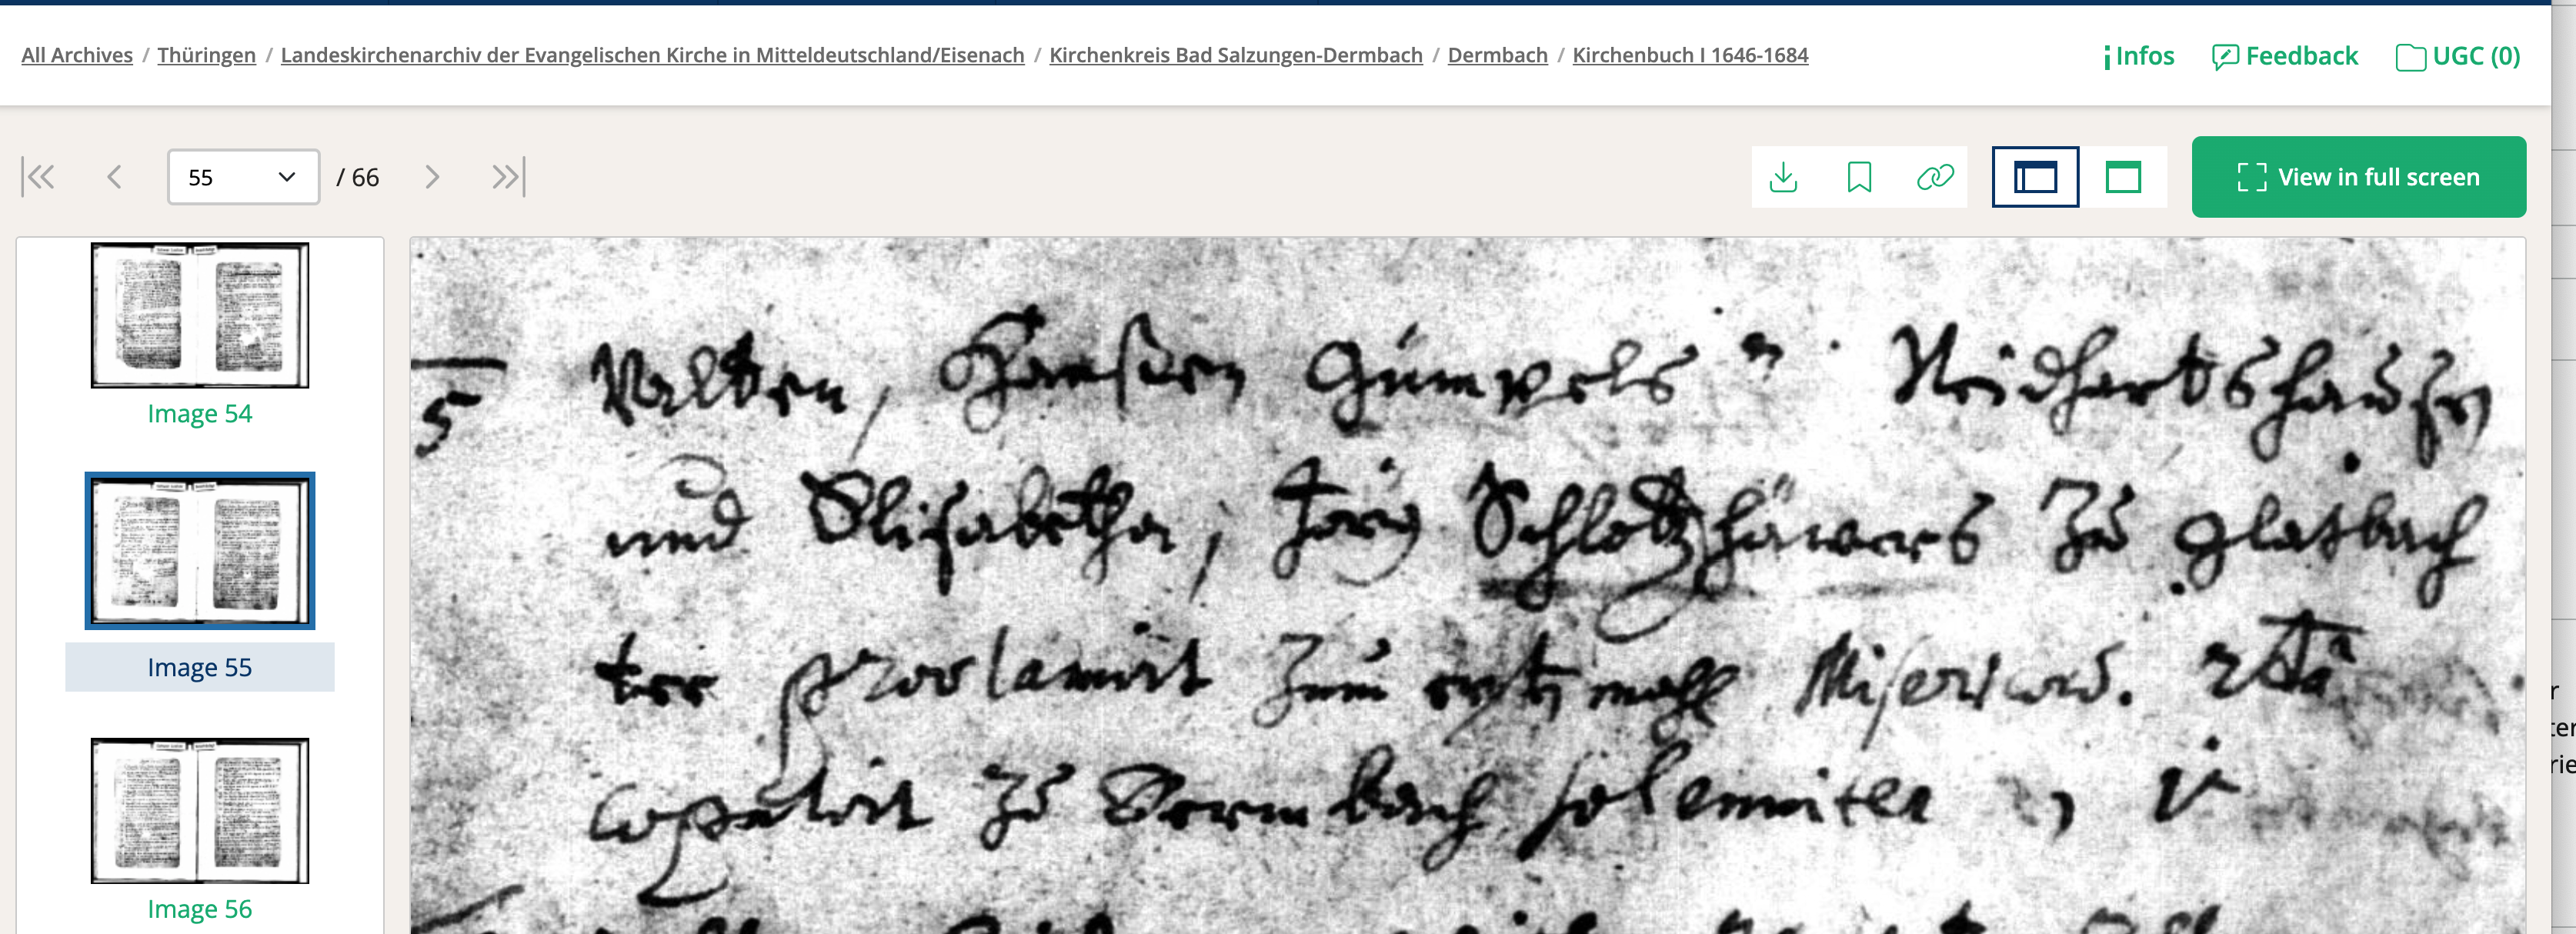 All Archives / Thüringen / Landeskirchenarchiv der Evangelischen Kirche in Mitteldeutschland/Eisenach / Kirchenkreis Bad Salzungen-Dermbach / Dermbach / Kirchenbuch I 1646-1684
Infos Feedback UGC (0)
55 / 66
View in full screen
Image 54
Image 55
Image 56
5 Valten, Hansen Gümpels Neidhartshausen
und Elisabetha, Jörg Schlotzhawers zu glatbach
ter proclamirt zum mahl Misericord.
copulirt zu Dermbach solenniter